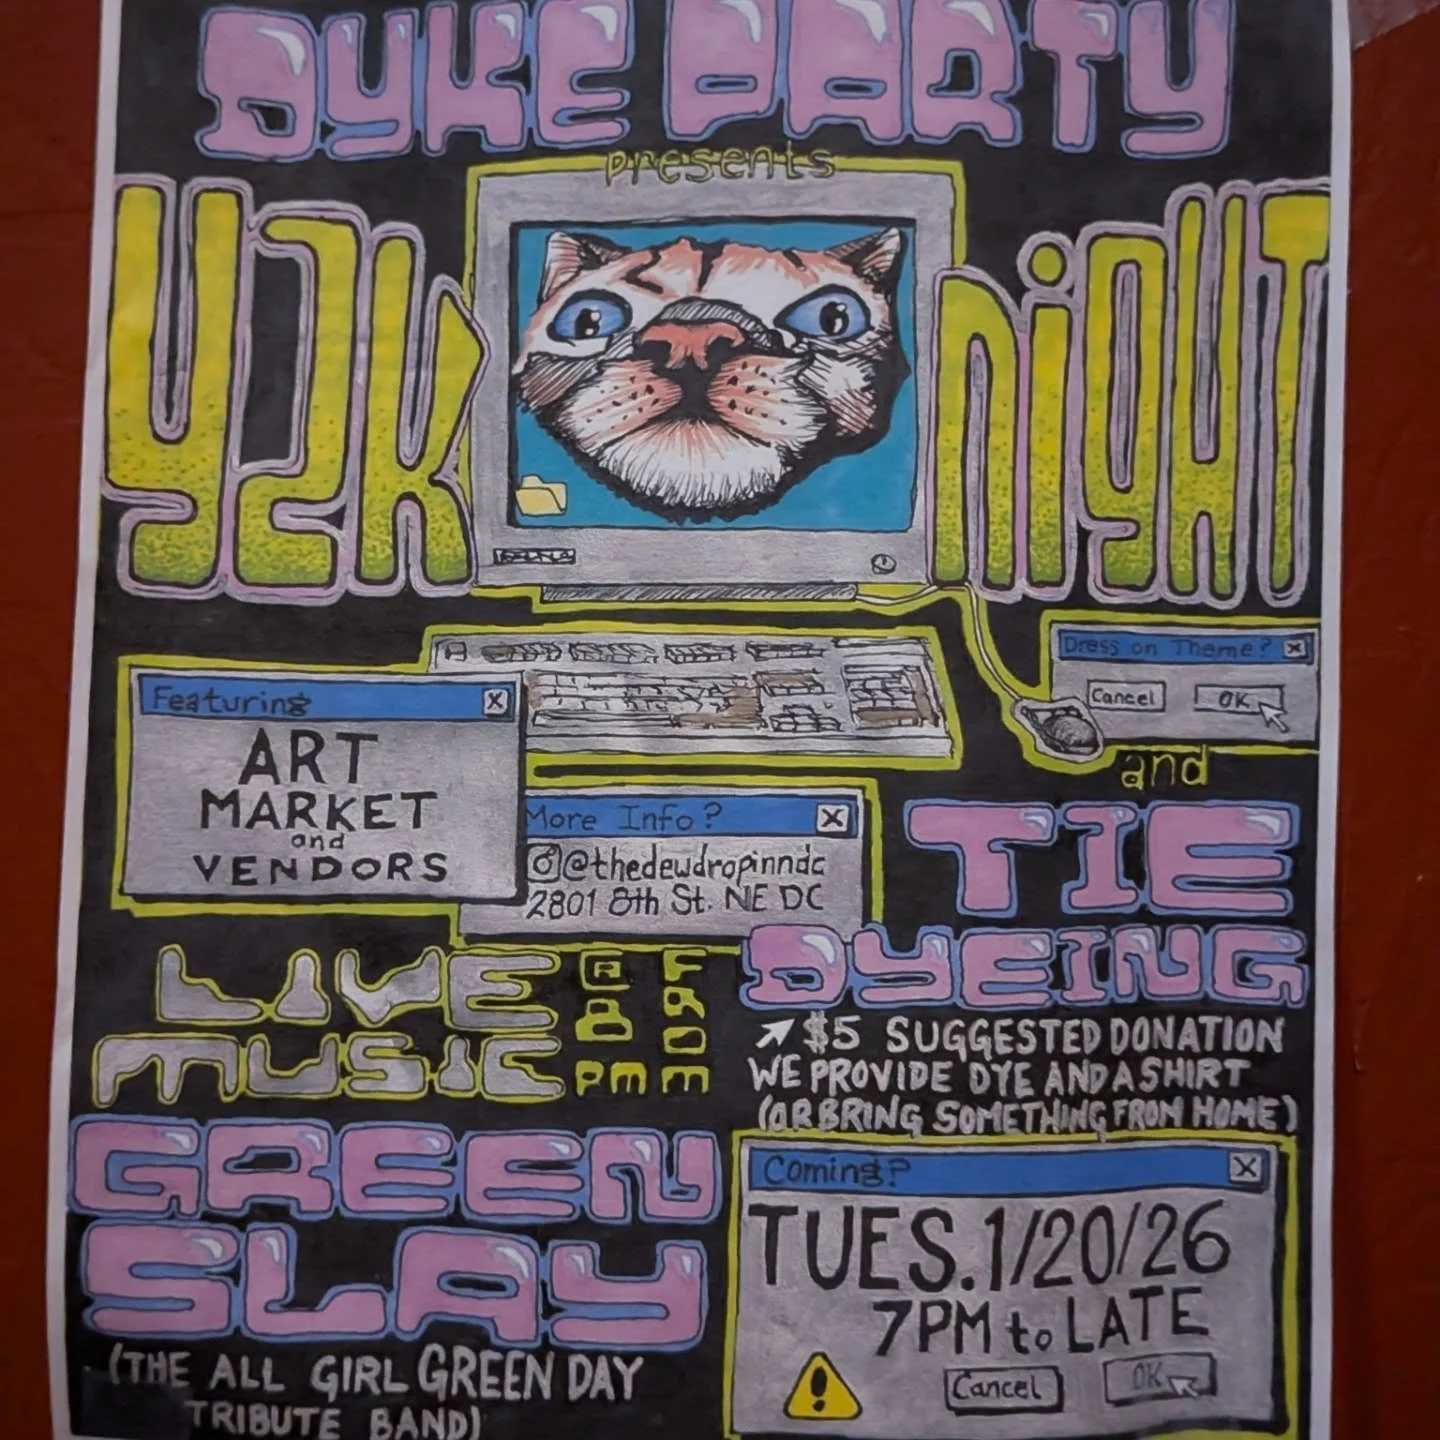 DYKE PARTY
presents
Y2K NIGHT
Dress on Theme? X
Cancel OK
Featuring X
ART
MARKET
and
VENDORS
More Info? X
@thedewdropinndc
2801 8th St. NE DC
and
TIE
DYEING
$5 SUGGESTED DONATION
WE PROVIDE DYE AND A SHIRT
(OR BRING SOMETHING FROM HOME)
LIVE
MUSIC
@ 8 pm
FROM
GREEN
SLAY
(THE ALL GIRL GREEN DAY
TRIBUTE BAND)
Coming? X
TUES. 1/20/26
7PM to LATE
!
Cancel OK